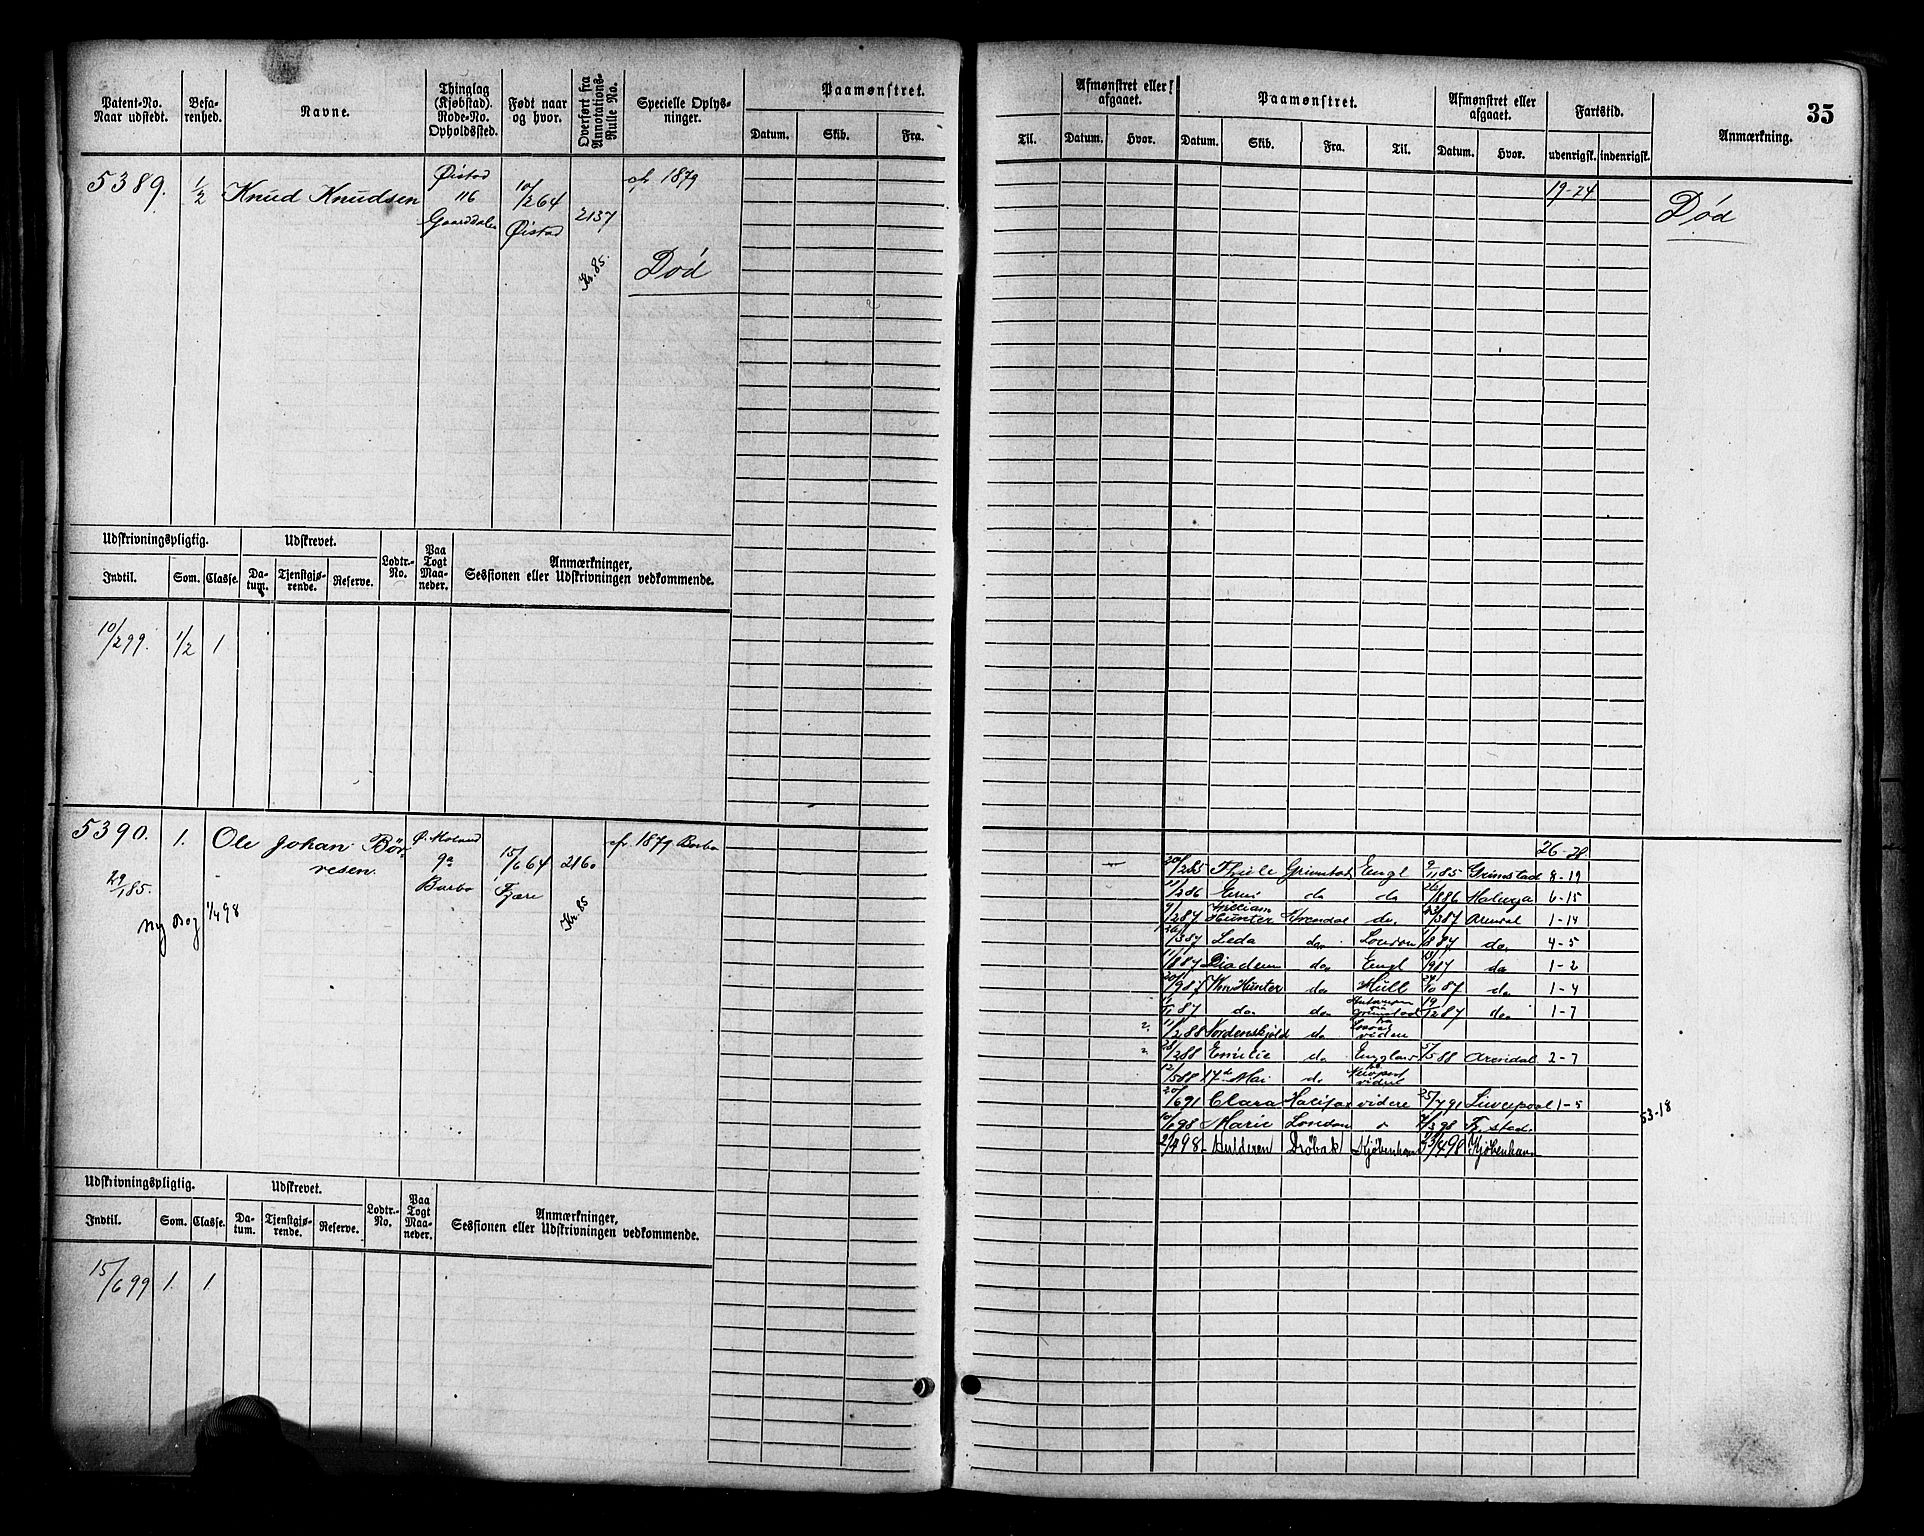 35
Patent-No. Naar udstedt.
Befarenhed.
Navne.
Thinglag (Kjøbstad). Rode-No. Opholdssted.
Født naar og hvor.
Overført fra Annotations-Rulle No.
Specielle Oplysninger.
Paamønstret.
Datum. Skib. Fra. Til.
Afmønstret eller afgaaet.
Datum. Hvor.
Paamønstret.
Datum. Skib. Fra. Til.
Afmønstret eller afgaaet.
Datum. Hvor.
Fartstid.
udenrigsk. indenrigsk.
Anmærkning.
5389. 1/2 Knud Knudsen
Øistad
116
Gaarddalen
10/2 64
Øistad
2137
Kr. 85.
cfr 1879
Død
19-24
Død
Udskrivningspligtig. Udskrevet. Lodtr.-No. Paa Togt Maaneder. Anmærkninger, Sessionen eller Udskrivningen vedkommende.
Indtil. Som. Classe. Datum. Tjenstgjørende. Reserve.
10/2 99. 1/2 1
5390. 1. Ole Johan Börresen.
29/1 85.
Ny Bog 1/4 98
Ø. Moland
9a
Barbo
15/6 64
Fjære
2160
Kr. 85
cfr. 1879 Barbo
26-28
20/2 85 Thiele Grimstad Engl 9/11 85 Grimstad 8-19
11/2 86 do do 26/8 86 6-15
9/2 87 William Hunter Arendal do 23/3 87 Arendal 1-14
26/3 87 Leda do London 1/8 87 do 4-5
11/8 87 Diadem do Engl 13/9 87 do 1-2
20/9 87 Wm Hunter do Hull 24/10 87 do 1-4
87 do do Antwerpen Grimstad 19/12 87 do 1-7
11/2 88 Nordenskjold do videre
28/2 88 Emilie do England 5/5 88 Arendal 2-7
12/5 88 17de Mai do Newport videre
20/6 91 Clara Halifax videre 25/7 91 Liverpool 1-5
53-18
98 Marie London 98
2/4 98 Hulderen Drøbak Kjøbenhavn 23/4 98 Kjøbenhavn
Udskrivningspligtig. Udskrevet. Lodtr.-No. Paa Togt Maaneder. Anmærkninger, Sessionen eller Udskrivningen vedkommende.
Indtil. Som. Classe. Datum. Tjenstgjørende. Reserve.
15/6 99 1. 1.